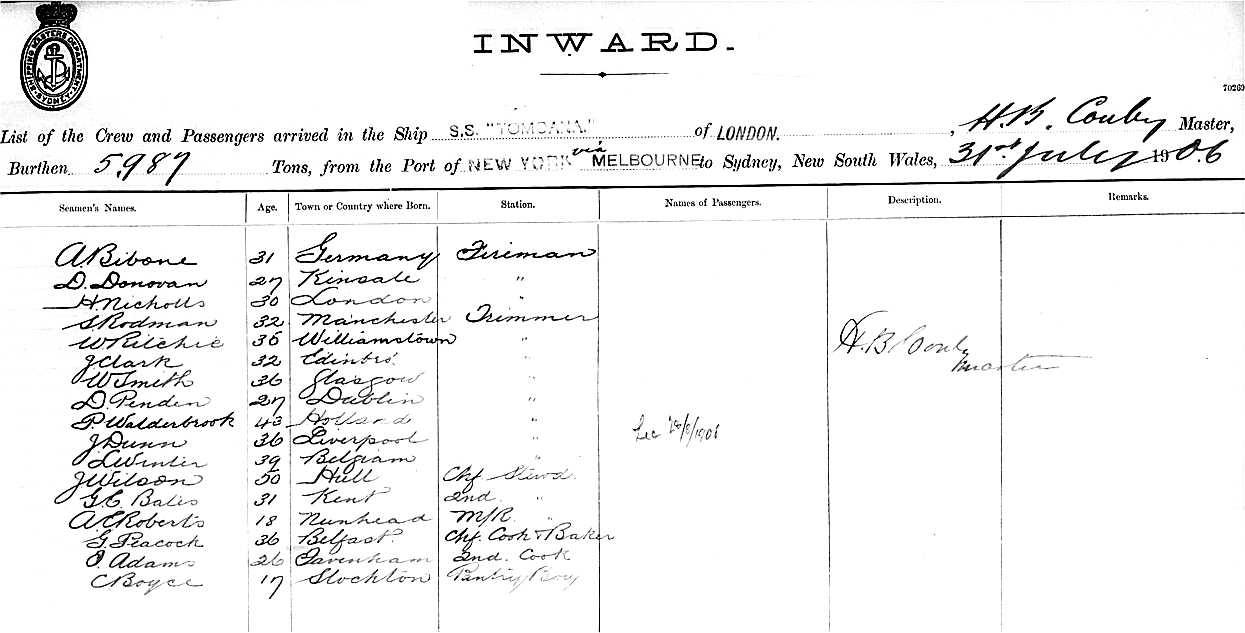 SHIPPING MASTERS DEPARTMENT SYDNEY
INWARD.
70269
List of the Crew and Passengers arrived in the Ship S.S. "TOMOANA." of LONDON. , H.B. Conby Master,
Burthen 5,987 Tons, from the Port of NEW YORK via MELBOURNE to Sydney, New South Wales, 31st July 1906
Seamen's Names. Age. Town or Country where Born. Station. Names of Passengers. Description. Remarks.
A. Bibone 31 Germany Fireman
D. Donovan 27 Kinsale "
H Nicholls 30 London "
S. Rodman 32 Manchester Trimmer
W Ritchie 35 Williamstown "
J Clark 32 Edinbro' "
H.B. Conby
Master
W Smith 36 Glasgow "
D. Penden 27 Dublin "
P. Walderbrook 43 Holland "
J Dunn 36 Liverpool "
L Winter 39 Belgium "
J Wilson 50 Hull Chf. Stewd.
G. E. Bates 31 Kent 2nd. "
A. E Roberts 18 Nunhead M/R. "
G. Peacock 36 Belfast. Chf. Cook & Baker
Adams 26 2nd. Cook
C Boyce 17 Stockton Pantry Boy